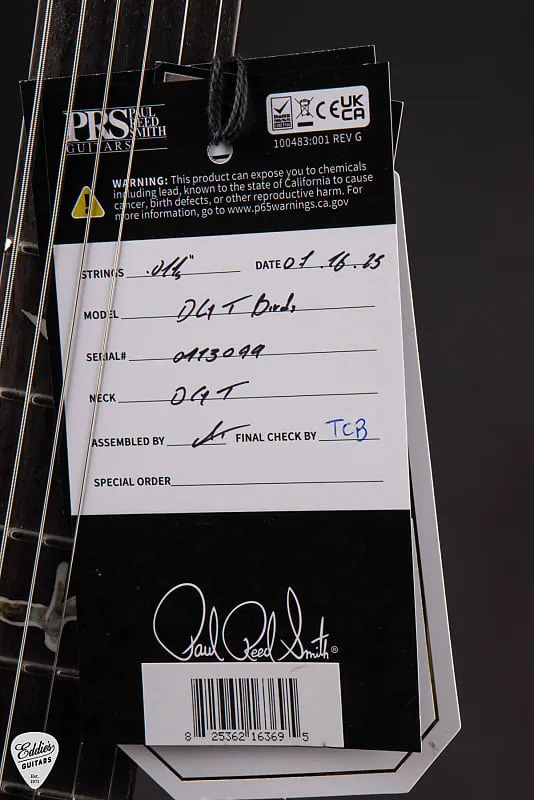 PRS PAUL REED SMITH
GUITARS
UK CA
CE
100483:001 REV G
WARNING: This product can expose you to chemicals
including lead, known to the state of California to cause
cancer, birth defects, or other reproductive harm. For
more information, go to www.p65warnings.ca.gov
STRINGS DATE 07.16.25
MODEL DGT Birds
SERIAL#
NECK DGT
ASSEMBLED BY FINAL CHECK BY TCB
SPECIAL ORDER
Paul Reed Smith®
8 25362 16369 5
Eddie's
GUITARS
Est.
1971